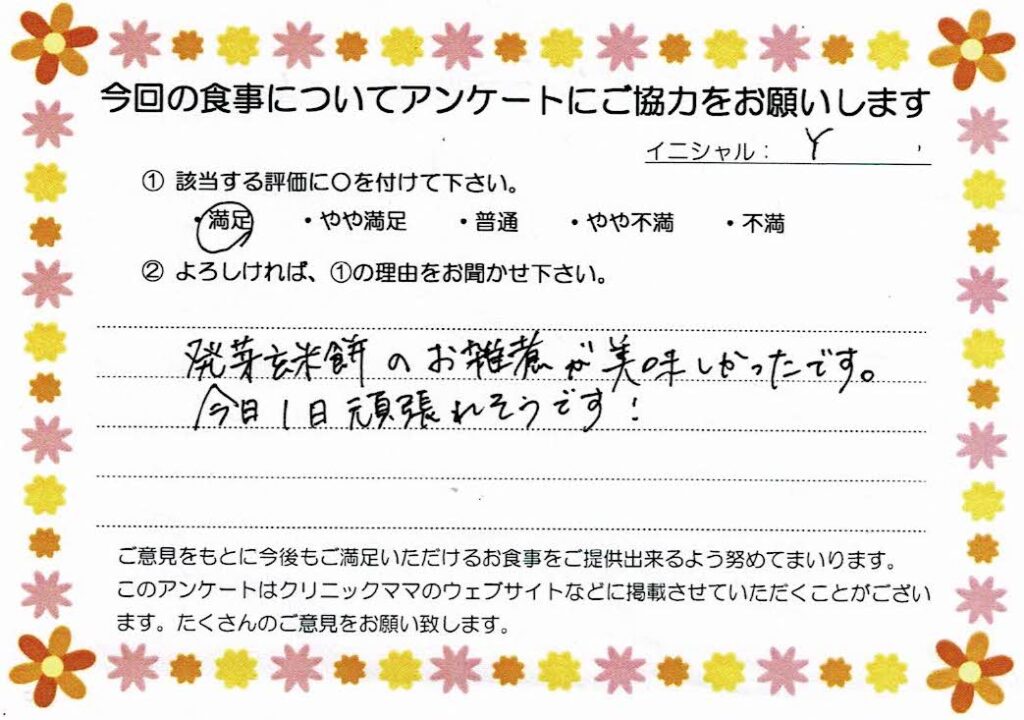 今回の食事についてアンケートにご協力をお願いします
イニシャル： Y
① 該当する評価に〇を付けて下さい。
・満足 ・やや満足 ・普通 ・やや不満 ・不満
② よろしければ、①の理由をお聞かせ下さい。
発芽玄米餅のお雑煮が美味しかったです。
今日1日頑張れそうです！
ご意見をもとに今後もご満足いただけるお食事をご提供出来るよう努めてまいります。
このアンケートはクリニックママのウェブサイトなどに掲載させていただくことがござい
ます。たくさんのご意見をお願い致します。